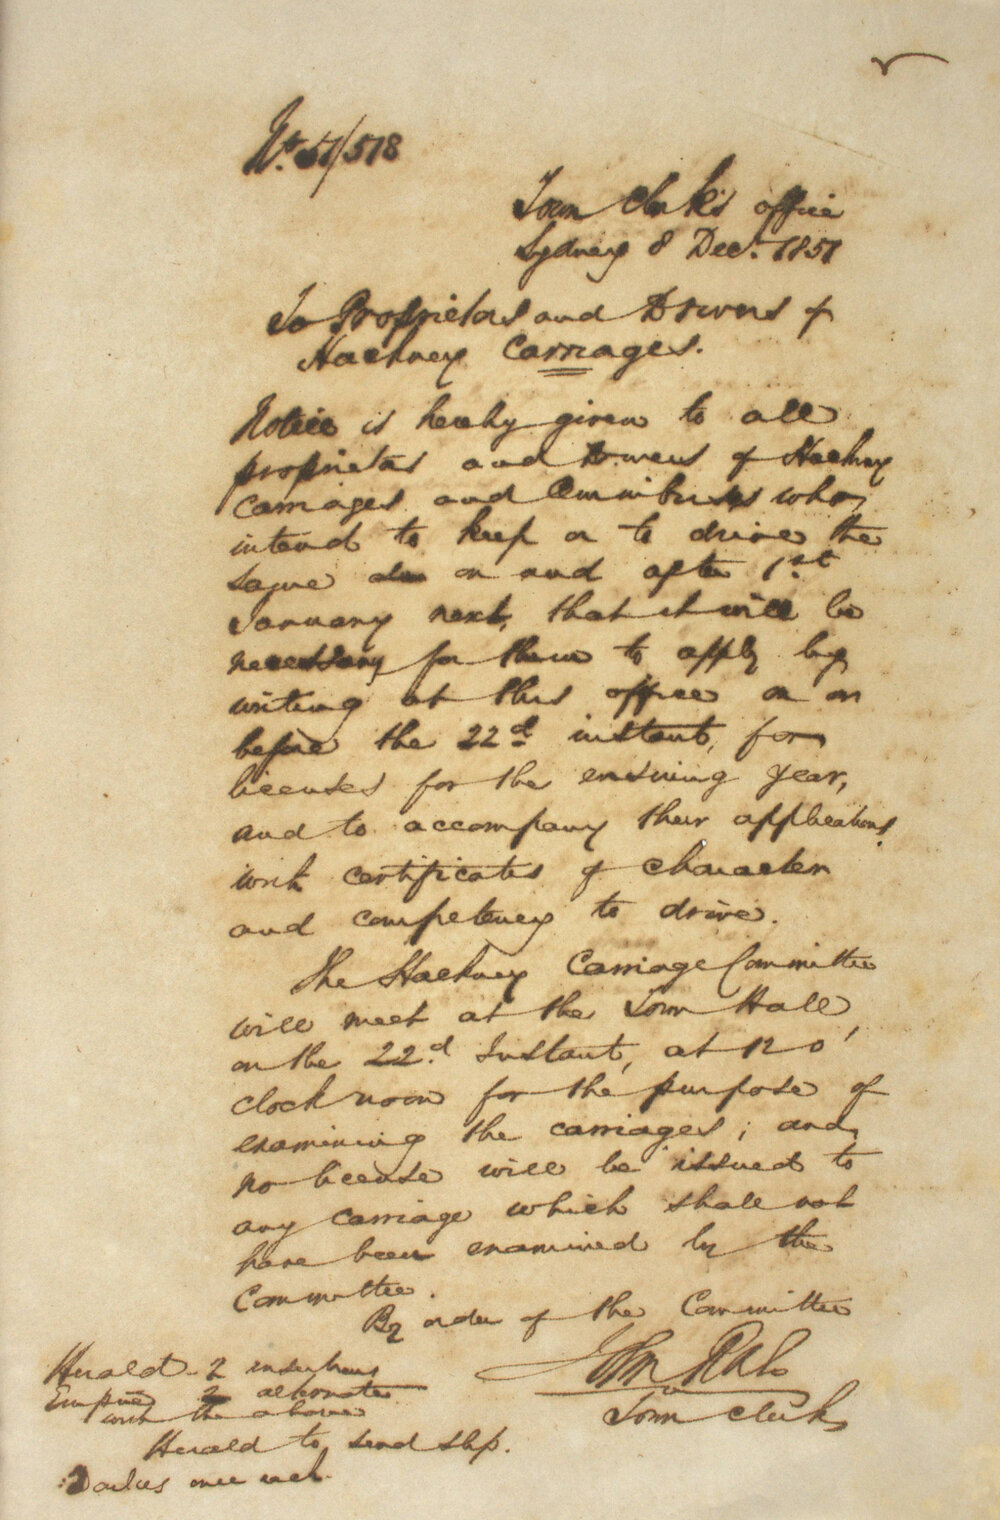 No. 51/518
Town Clerk's office
Sydney 8 Decr. 1851
To Proprietors and Drivers of
Hackney Carriages.
Notice is hereby given to all
proprietors and Drivers of Hackney
carriages and Omnibuses who
intend to keep or to drive the
same on and after 1st
January next, that it will be
necessary for them to apply by
writing at this office on or
before the 22d instant, for
licenses for the ensuing year,
and to accompany their applications
with certificates of character
and competency to drive.
The Hackney Carriage Committee
will meet at the Town Hall,
on the 22d Instant, at 12 o'
clock noon for the purpose of
examining the carriages; and
no license will be issued to
any carriage which shall not
have been examined by the
Committee.
By order of the Committee
John
Town Clerk
Herald 2 insertions
Empire 2 alternate
with the above
Herald to send slip.
once each.